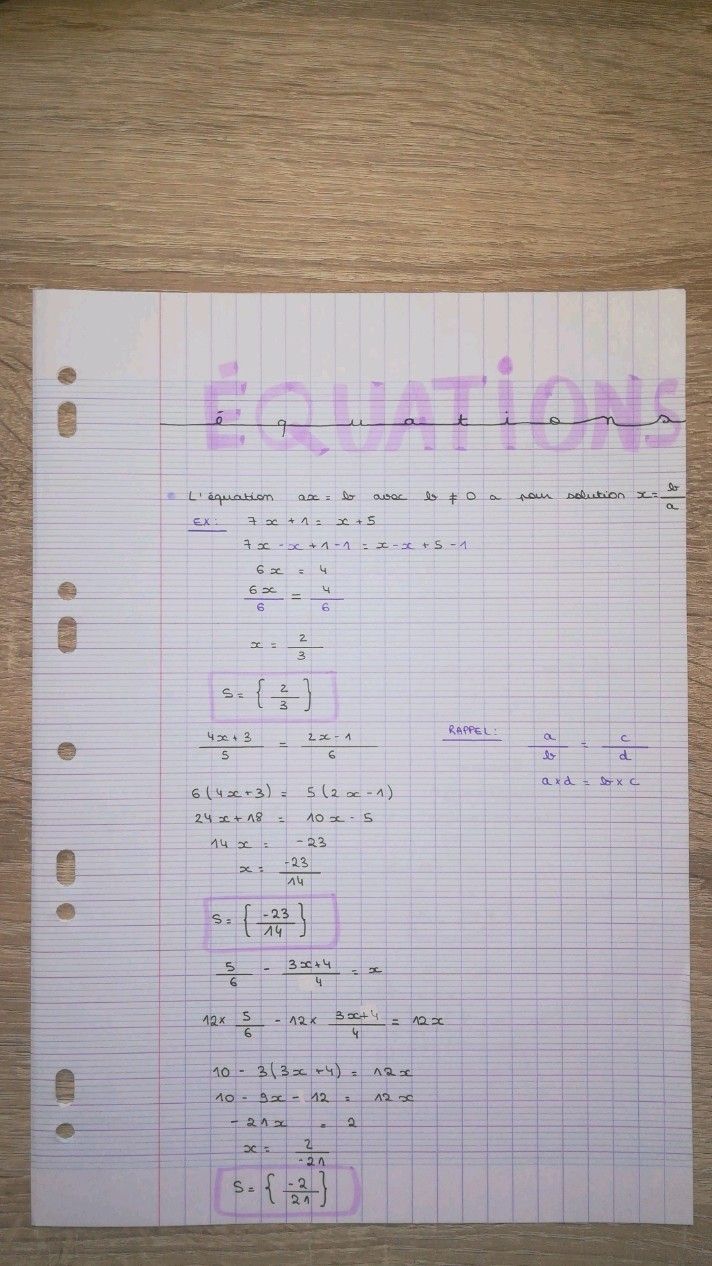 ÉQUATIONS
équations
L'équation ax = b avec b ≠ 0 a pour solution x = b/a
EX: 7x + 1 = x + 5
7x - x + 1 - 1 = x - x + 5 - 1
6x = 4
6x/6 = 4/6
x = 2/3
S = {2/3}
4x+3/5 = 2x-1/6
RAPPEL: a/b = c/d
a×d = b×c
6(4x+3) = 5(2x-1)
24x+18 = 10x-5
14x = -23
x = -23/14
S = {-23/14}
5/6 - 3x+4/4 = x
12× 5/6 - 12× 3x+4/4 = 12x
10 - 3(3x+4) = 12x
10 - 9x - 12 = 12x
-21x = 2
x = 2/-21
S = {-2/21}